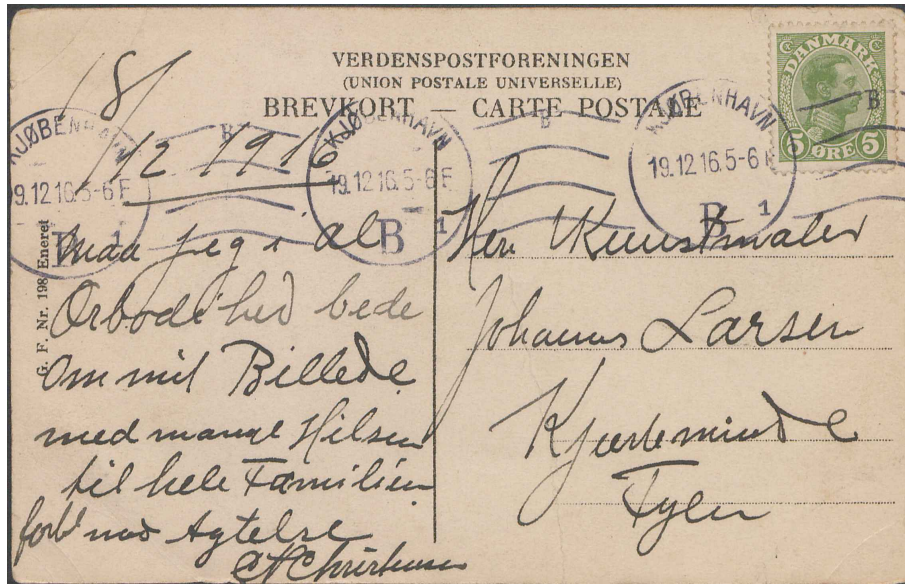 VERDENSPOSTFORENINGEN
(UNION POSTALE UNIVERSELLE)
BREVKORT — CARTE POSTALE
DANMARK
5 ØRE 5
KJØBENHAVN
19.12.16.5-6 F
B
1
KJØBENHAVN
19.12.16.5-6 F
B
1
B
KJØBENHAVN
19.12.16.5-6
B
1
B
B
18/
12 1916
Maa jeg i al
Ærbødihed bede
om mit Billede
med mange Hilsen
til hele Familien
forbl med Agtelse
Herr Kunstmaler
Johannes Larsen
Kjerteminde
Fyen
G. F. Nr. 198 Eneret